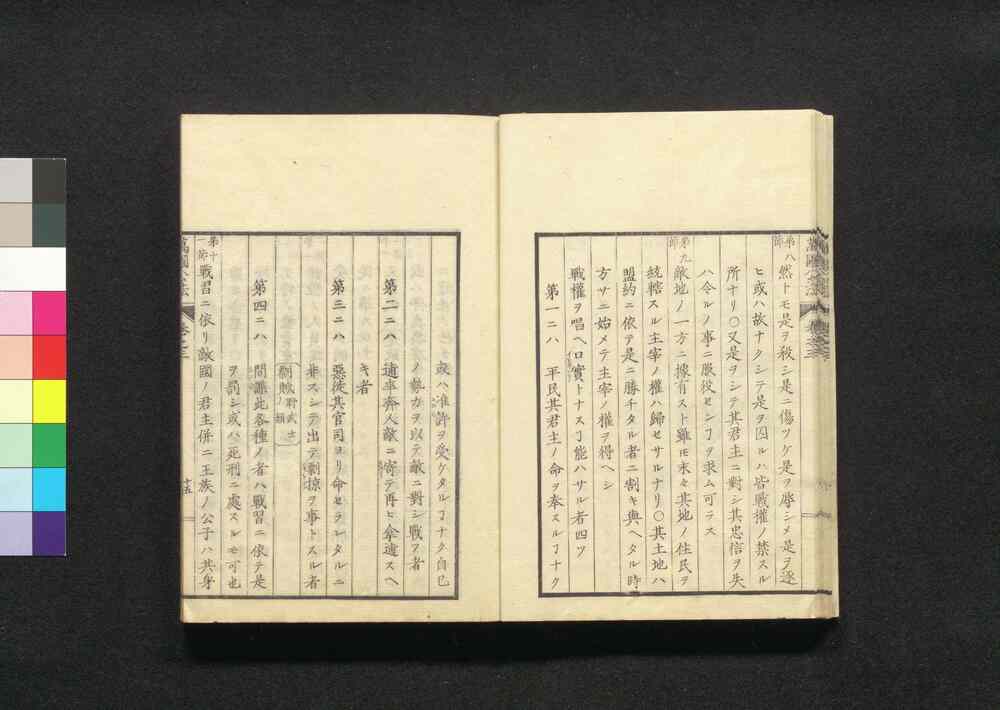 第八節
然トモ是ヲ殺シ是ニ傷ツケ是ヲ辱シメ是ヲ逐
ヒ或ハ故ナクシテ是ヲ囚ルハ皆戰權ノ禁スル
所ナリ○又是ヲシテ其君主ニ對シ其忠信ヲ失
ハ令ルノ事ニ服役センヿヲ求ム可ラス
第九節
敵地ノ一方ニ據有スト雖モ未タ其地ノ住民ヲ
統轄スル主宰ノ權ハ歸セサルナリ○其土地ハ
盟約ニ依テ是ニ勝チタル者ニ割キ與ヘタル時
方サニ始メテ主宰ノ權ヲ得ヘシ
戰權ヲ唱ヘ口實トナスヿ能ハサル者四ツ
第一ニハ 平民其君主ノ命ヲ奉スルヿナク
或ハ准許ヲ受ケタルヿナク自己
ノ勢力ヲ以テ敵ニ對シ戰フ者
第二ニハ 逋卒奔人敵ニ寄テ再ヒ傘逋スヘ
キ者
第三ニハ 惡徒其官司ヨリ命セラレタルニ
非スシテ出テ剽掠ヲ事トスル者
第四ニハ 間諜此各種ノ者ハ戰習ニ依テ是
ヲ罰シ或ハ死刑ニ處スルモ可也
第十一節
戰習ニ依リ敵國ノ君主併ニ王族ノ公子ハ其身
萬國公法
卷之三
十五